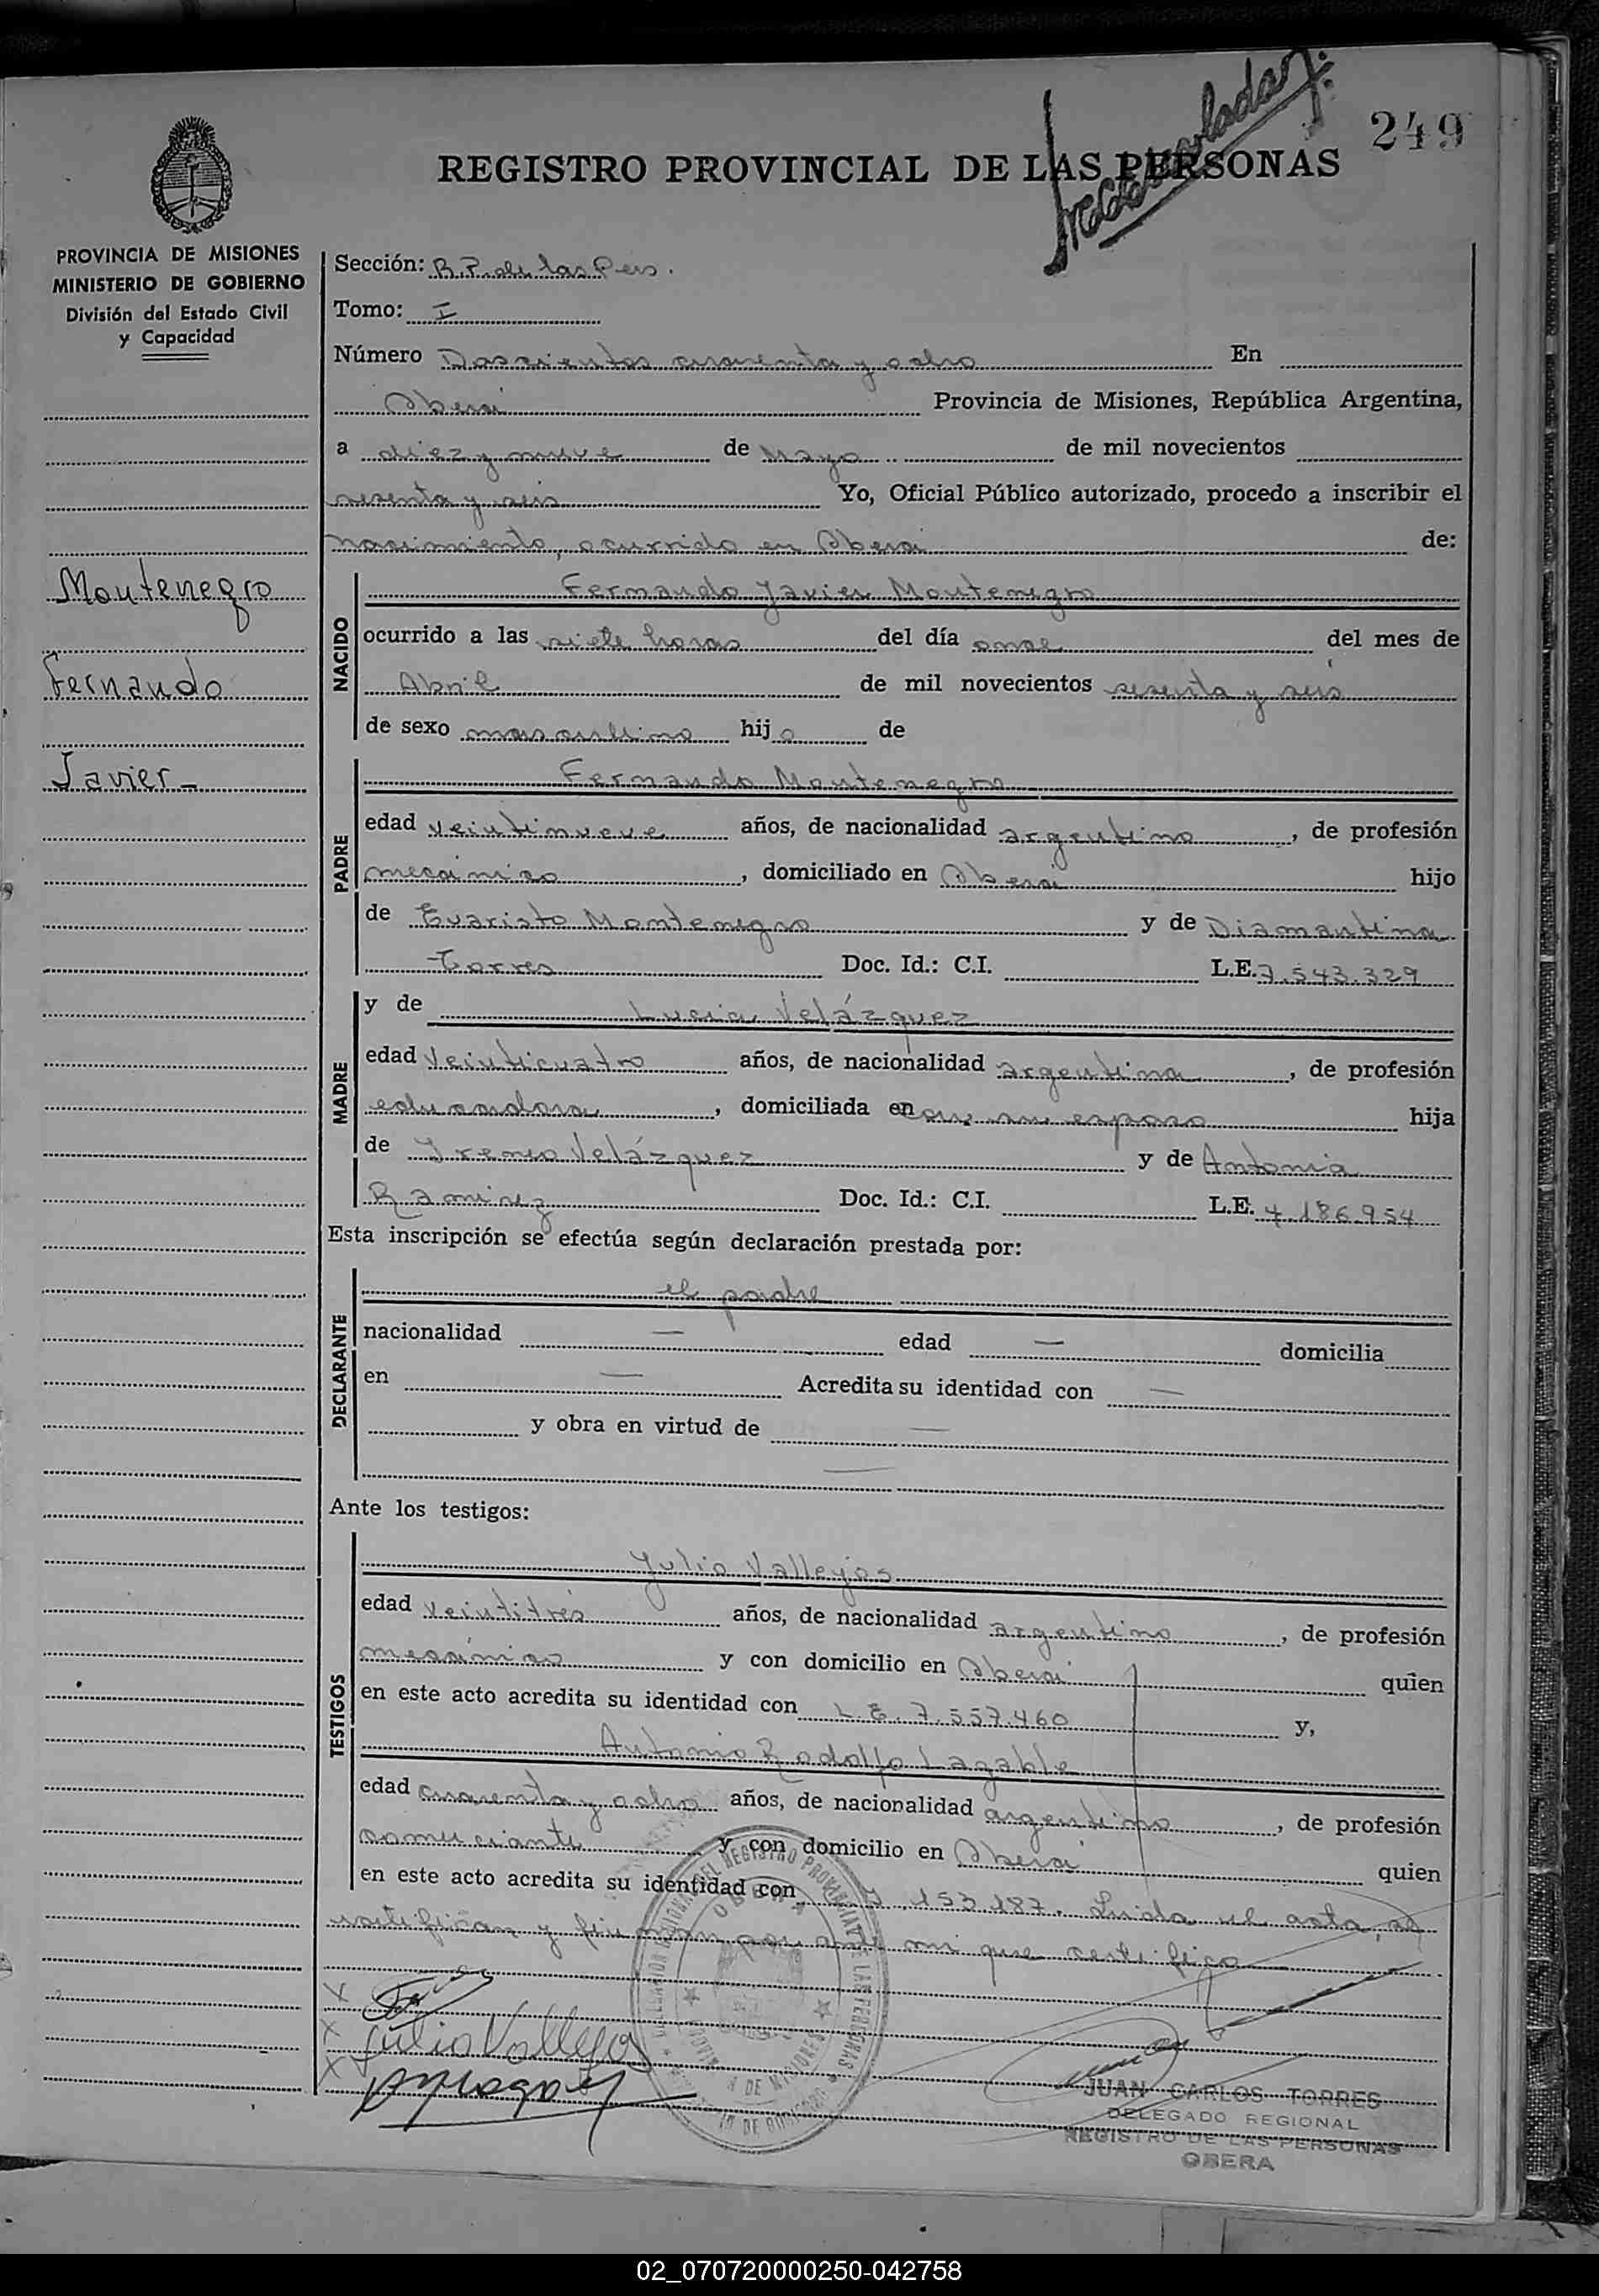 249
REGISTRO PROVINCIAL DE LAS PERSONAS
PROVINCIA DE MISIONES
MINISTERIO DE GOBIERNO
División del Estado Civil
y Capacidad
Montenegro
Fernando
Javier-
Sección: R.P. de las Pers.
Tomo: I
Número Doscientos cuarenta y ocho En
Oberá Provincia de Misiones, República Argentina,
a diez y nueve de Mayo de mil novecientos
sesenta y seis Yo, Oficial Público autorizado, procedo a inscribir el
nacimiento, ocurrido en Oberá de:
NACIDO
Fernando Javier Montenegro
ocurrido a las siete horas del día once del mes de
Abril de mil novecientos sesenta y seis
de sexo masculino hijo de
PADRE
Fernando Montenegro
edad veintinueve años, de nacionalidad argentino, de profesión
mecánico, domiciliado en Oberá hijo
de Evaristo Montenegro y de Diamantina
Torres Doc. Id.: C.I. L.E. 7.543.329
MADRE
y de Lucia Velázquez
edad Veinticuatro años, de nacionalidad argentina, de profesión
educadora, domiciliada en su esposo hija
de Ireneo Velázquez y de Antonia
Ramirez Doc. Id.: C.I. L.E. 4.186.954
Esta inscripción se efectúa según declaración prestada por:
DECLARANTE
el padre
nacionalidad — edad — domicilia
en — Acredita su identidad con —
y obra en virtud de —
—
Ante los testigos:
TESTIGOS
Julio Vallejos
edad veintitrés años, de nacionalidad argentino, de profesión
mecánico y con domicilio en Oberá quien
en este acto acredita su identidad con L.E. 7.557.460 y,
Antonio Rodolfo Lagable
edad cuarenta y ocho años, de nacionalidad argentino, de profesión
comerciante y con domicilio en Oberá quien
en este acto acredita su identidad con 7.153.187. Leida el acta, se
ratifican y firman por ante mi que certifico
x
x Julio Vallejo
x
JUAN CARLOS TORRES
DELEGADO REGIONAL
REGISTRO DE LAS PERSONAS
OBERA
02_070720000250-042758